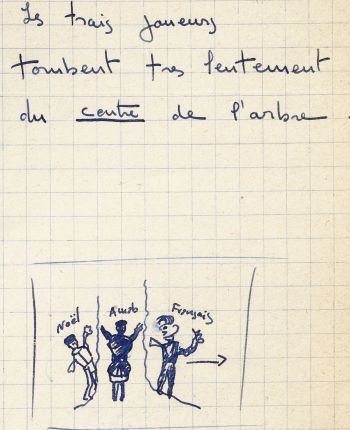 Les trais joueurs
tombent tres lentement
du centre de l'arbre.
Noël Français